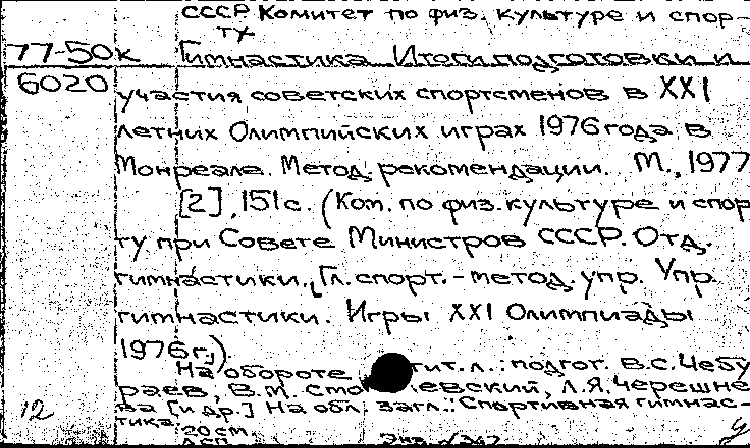 СССР. Комитет по физ. культуре и спор-
ту
77-50к Гимнастика. Итоги подготовки и
6020 участия советских спортсменов в XXI
летних Олимпийских играх 1976 года в
Монреале. Метод. рекомендации. М., 1977
[2], 151 с. (Ком. по физ. культуре и спор
ту при Совете Министров СССР. Отд.
гимнастики., Гл. спорт.-метод. упр. Упр.
гимнастики. Игры XXI Олимпиады
1976 г.)
На обороте тит. л.: подгот. В.С. Чебу
раев, В.М. Смо левский, Л.Я. Черешне
ва [и др.] На обл. загл.: Спортивная гимнас-
12 тика.
20 см